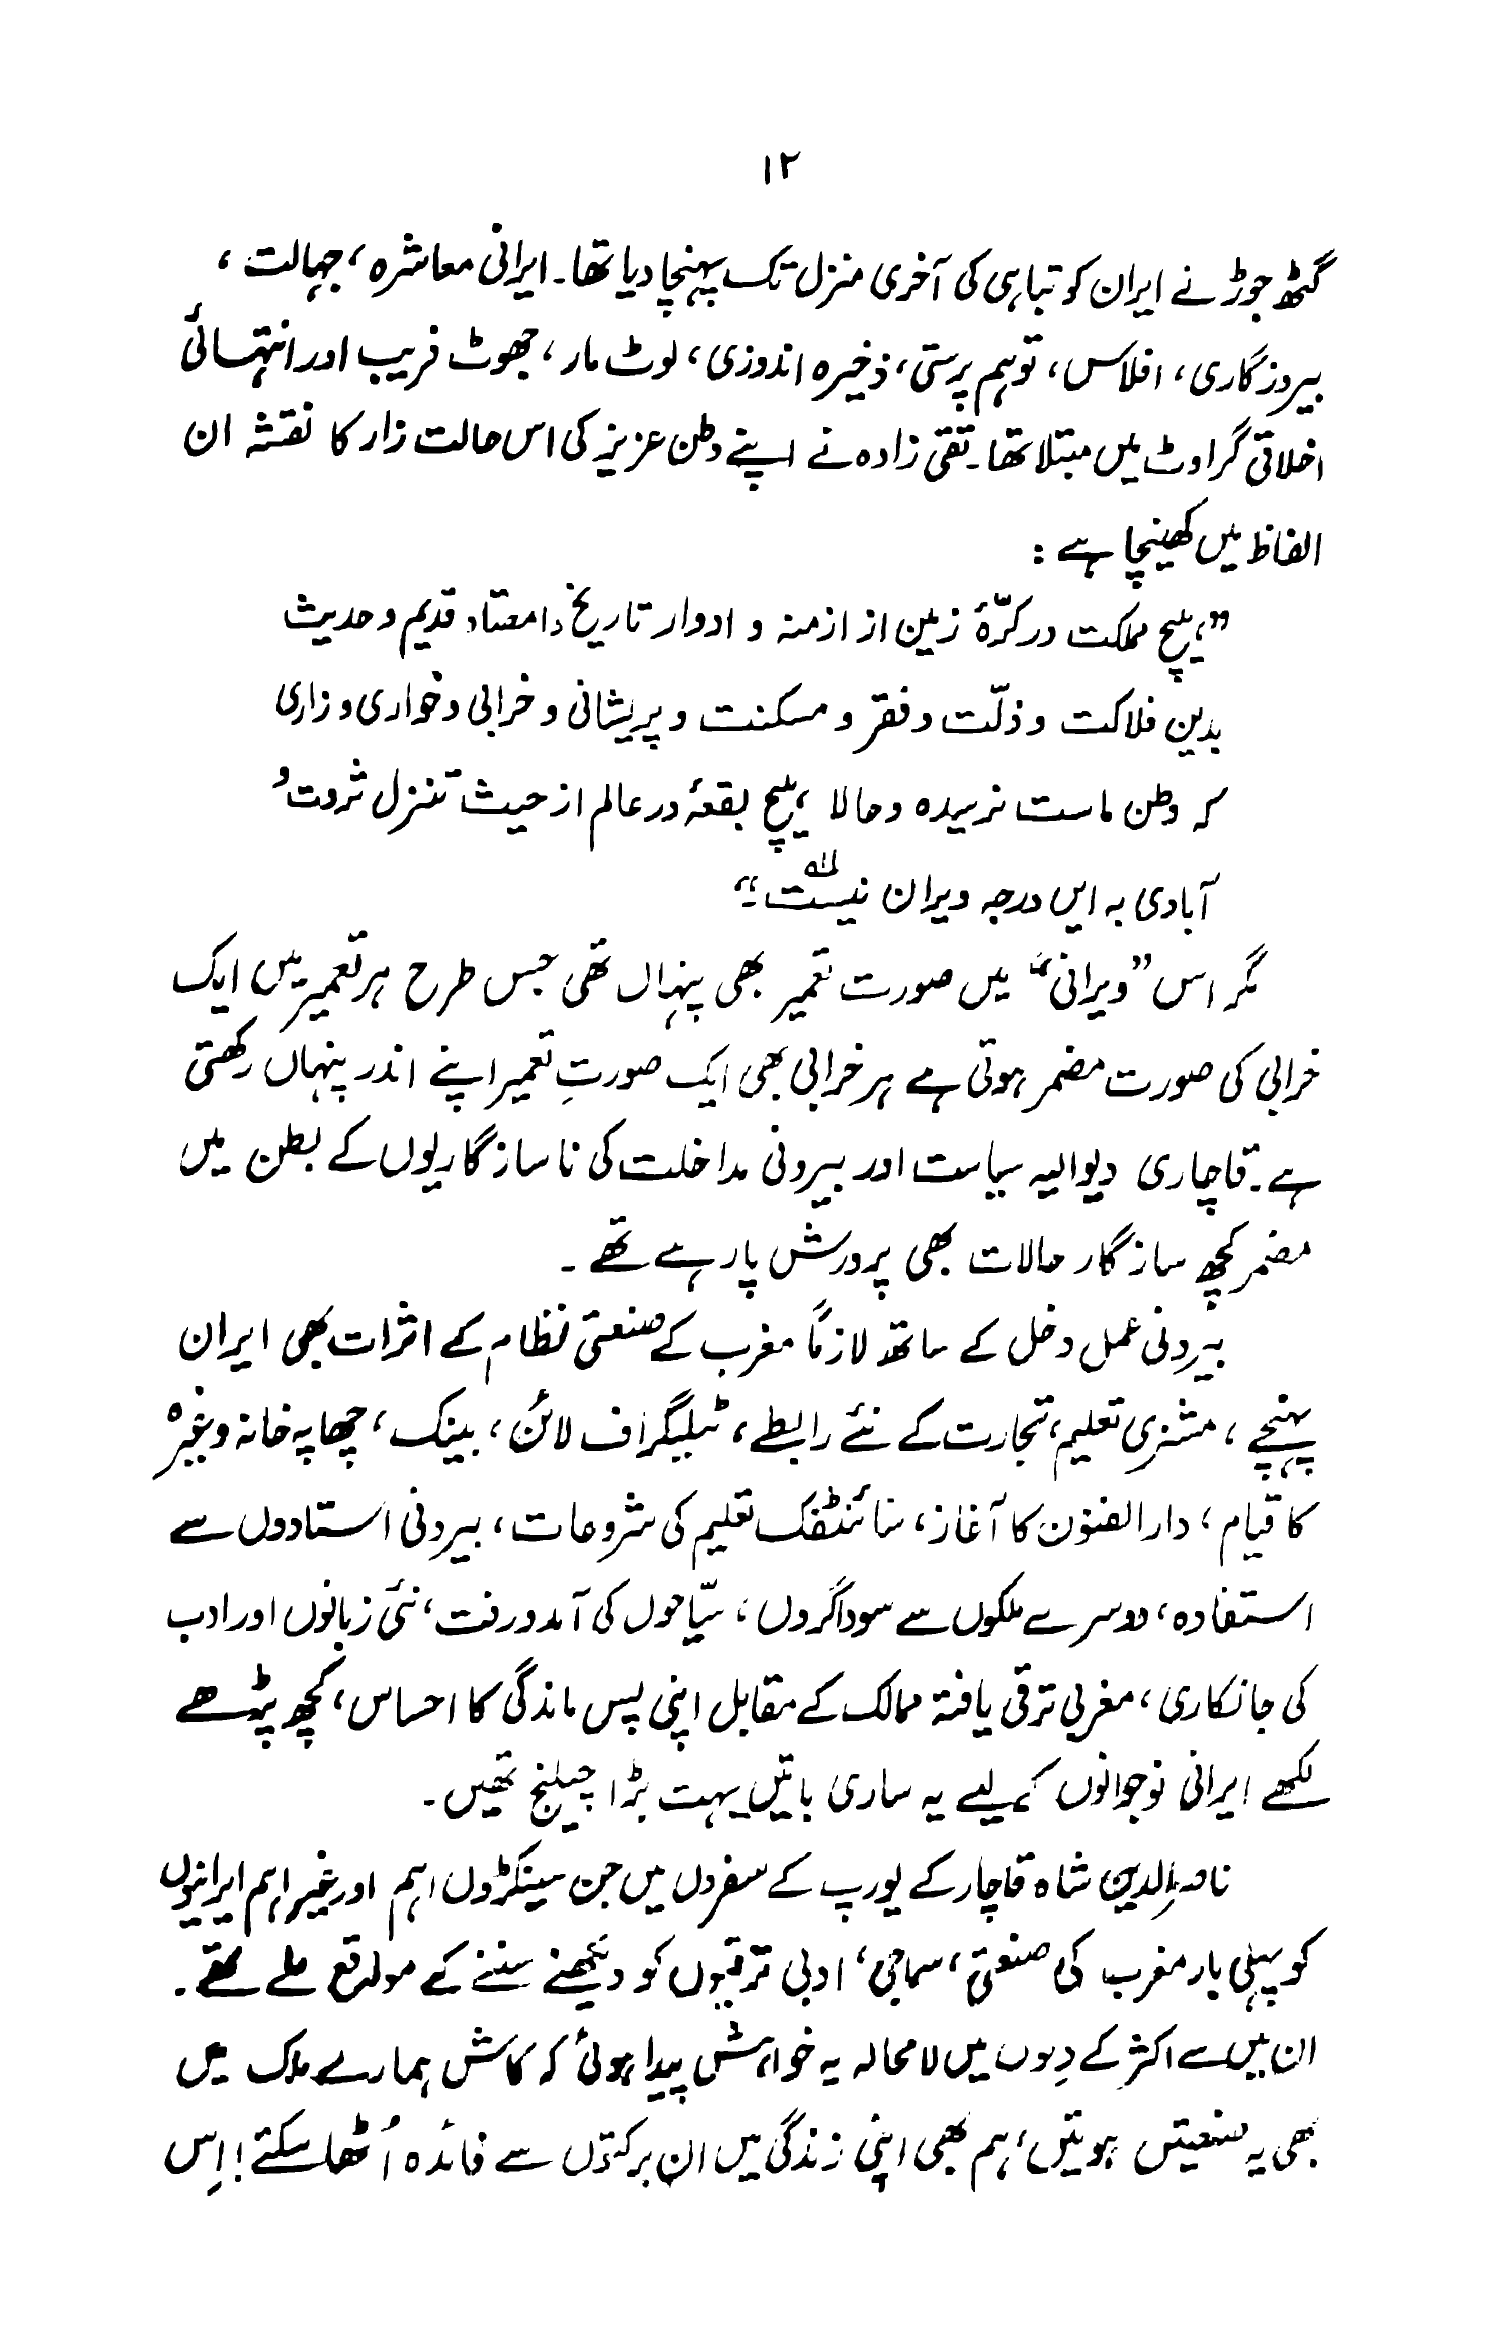 ۱۲
گٹھ جوڑ نے ایران کو تباہی کی آخری منزل تک پہنچا دیا تھا۔ ایرانی معاشرہ، جہالت،
بیروزگاری، افلاس، توہم پرستی، ذخیرہ اندوزی، لوٹ مار، جھوٹ فریب اور انتہائی
اخلاقی گراوٹ میں مبتلا تھا۔ تقی زادہ نے اپنے وطن عزیز کی اس حالت زار کا نقشہ ان
الفاظ میں کھینچا ہے :
”ہیچ مملکت در کرّۂ زمین از ازمنہ و ادوار تاریخ دامعتاد قدیم و حدیث
بدین فلاکت و ذلّت و فقر و مسکنت و پریشانی و خرابی و خواری و زاری
کہ وطن ماست نرسیدہ و حالا ہیچ بقعۂ در عالم از حیث تنزل ثروت و
آبادی بہ ایں درجہ ویران نیست۔“
مگر اس ”ویرانی“ میں صورت تعمیر بھی پنہاں تھی جس طرح ہر تعمیر میں ایک
خرابی کی صورت مضمر ہوتی ہے ہر خرابی بھی ایک صورتِ تعمیر اپنے اندر پنہاں رکھتی
ہے۔ قاچاری دیوالیہ سیاست اور بیرونی مداخلت کی ناسازگاریوں کے بطن میں
مضمر کچھ سازگار حالات بھی پرورش پا رہے تھے۔
بیرونی عمل دخل کے ساتھ لازماً مغرب کے صنعتی نظام کے اثرات بھی ایران
پہنچے، مشنری تعلیم، تجارت کے نئے رابطے، ٹیلیگراف لائن، بینک، چھاپہ خانہ وغیرہ
کا قیام، دارالفنون کا آغاز، سائنٹفک تعلیم کی شروعات، بیرونی استادوں سے
استفادہ، دوسرے ملکوں سے سوداگروں، سیّاحوں کی آمد و رفت، نئی زبانوں اور ادب
کی جانکاری، مغربی ترقی یافتہ ممالک کے مقابل اپنی پس ماندگی کا احساس، کچھ پڑھے
لکھے ایرانی نوجوانوں کے لیے یہ ساری باتیں بہت بڑا چیلنج تھیں۔
ناصرالدین شاہ قاچار کے یورپ کے سفروں میں جن سینکڑوں اہم اور غیر اہم ایرانیوں
کو پہلی بار مغرب کی صنعتی، سماجی، ادبی ترقیوں کو دیکھنے سننے کے مواقع ملے تھے۔
ان میں سے اکثر کے دِلوں میں لامحالہ یہ خواہش پیدا ہوئی کہ کاش ہمارے ملک میں
بھی یہ صنعتیں ہوتیں، ہم بھی اپنی زندگی میں ان برکتوں سے فائدہ اُٹھا سکتے! اِس